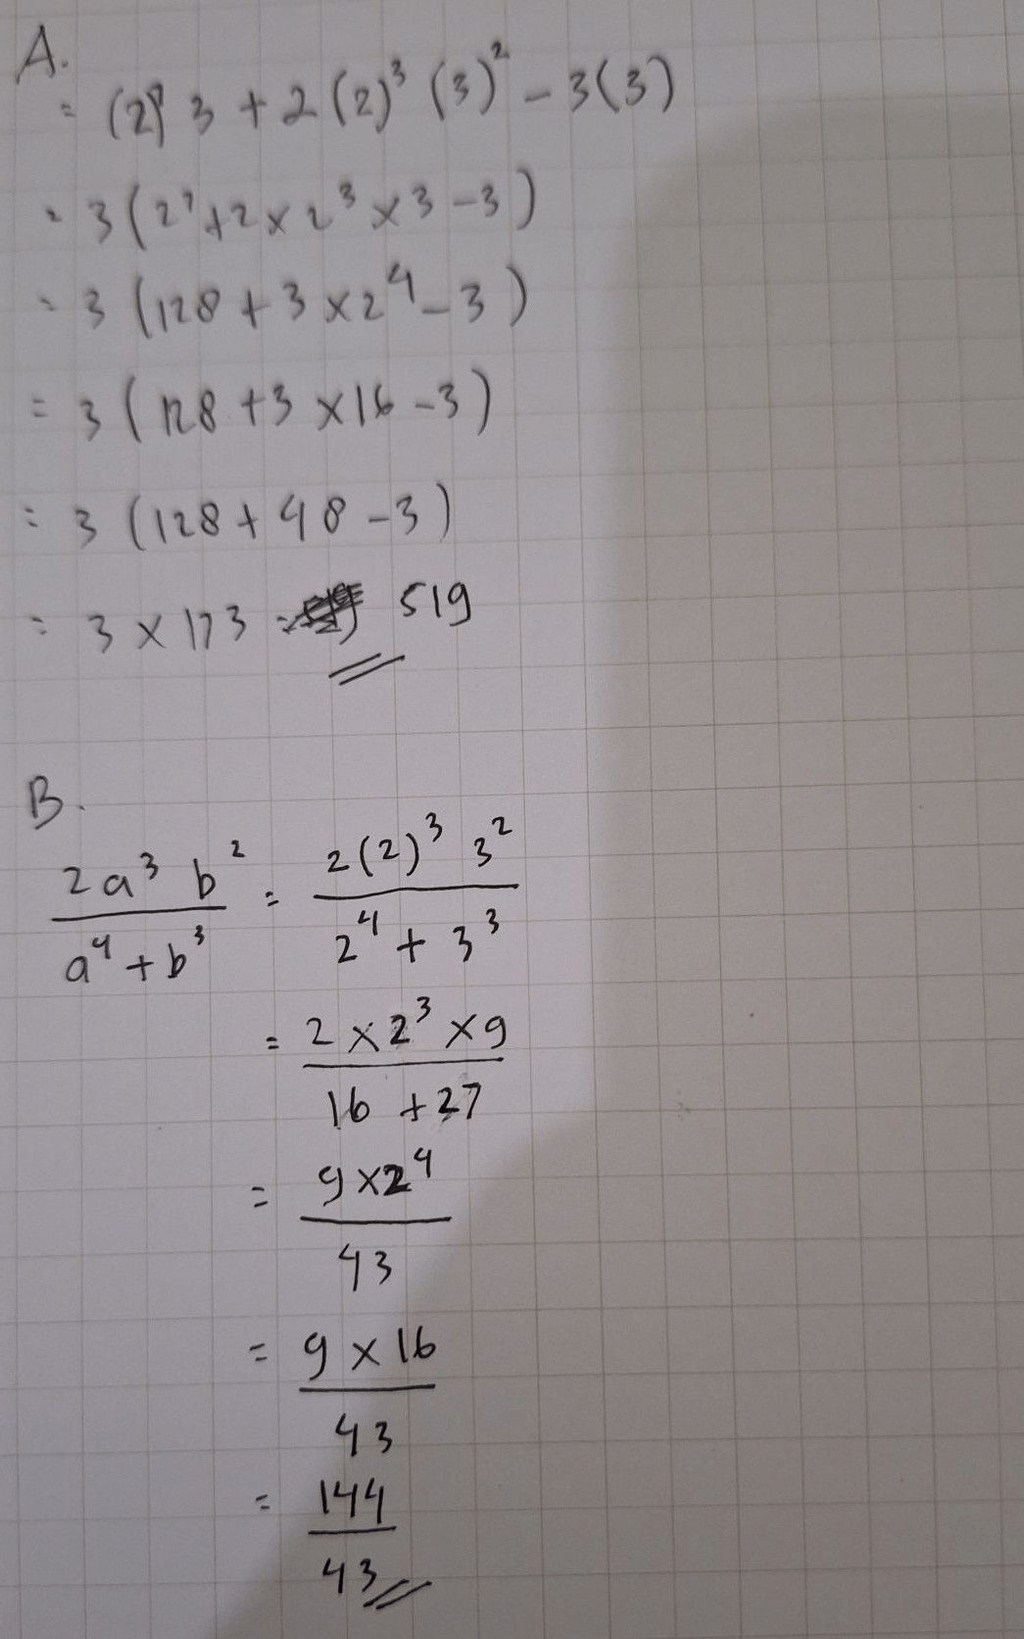 A.
= (2)⁷ 3 + 2 (2)³ (3)² - 3(3)
= 3 (2⁷ + 2 × 2³ × 3 - 3)
= 3 (128 + 3 × 2⁴ - 3)
= 3 (128 + 3 × 16 - 3)
= 3 (128 + 48 - 3)
= 3 × 173 = 519
B.
2a³ b² / a⁴ + b³ = 2(2)³ 3² / 2⁴ + 3³
= 2 × 2³ × 9 / 16 + 27
= 9 × 2⁴ / 43
= 9 × 16 / 43
= 144 / 43